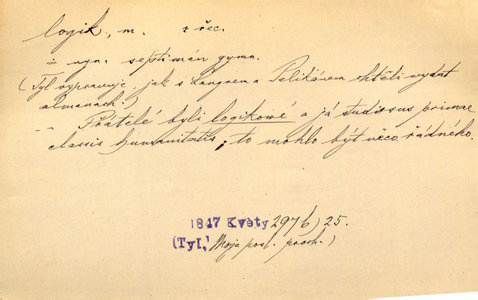 logik, m. z řec.
= nyn. septimán gymn.
(Tyl vypravuje, jak s Langrem a Pelikánem chtěli vydat
almanach:)
– Přátelé byli logikové a já studiosus primae
classis humanitatis, to mohlo být něco řádného.
1847 Květy 297b) 25.
(Tyl, Moje posl. proch.)